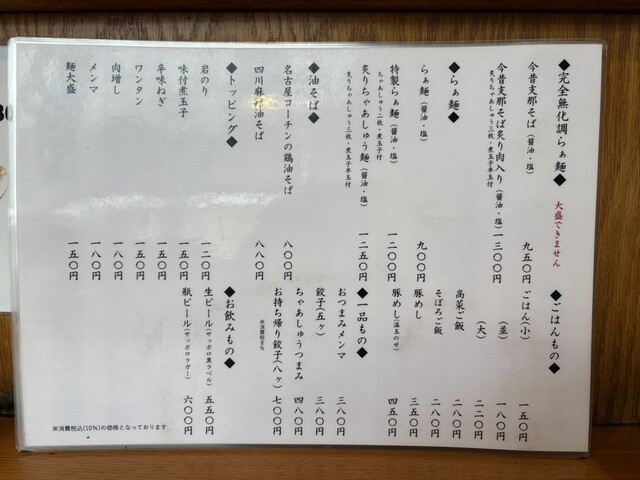 ◆完全無化調らぁ麺◆ 大盛できません
今昔支那そば(醤油・塩) 九五〇円
今昔支那そば炙り肉入り(醤油・塩) 一三〇〇円
炙りちゃあしゅう三枚・煮玉子半玉付
◆らぁ麺◆
らぁ麺(醤油・塩) 九〇〇円
特製らぁ麺(醤油・塩) 一二〇〇円
ちゃあしゅう二枚・煮玉子付
炙りちゃあしゅう麺(醤油・塩) 一二五〇円
炙りちゃあしゅう三枚・煮玉子半玉付
◆油そば◆
名古屋コーチンの鶏油そば 八〇〇円
四川麻辣油そば 八八〇円
◆トッピング◆
岩のり 一二〇円
味付煮玉子 一五〇円
辛味ねぎ 一五〇円
ワンタン 一五〇円
肉増し 一八〇円
メンマ 一八〇円
麺大盛 一五〇円
◆ごはんもの◆
ごはん(小) 一五〇円
(並) 一八〇円
(大) 二二〇円
高菜ご飯 二八〇円
そぼろご飯 二八〇円
豚めし 三五〇円
豚めし(温玉のせ) 四五〇円
◆一品もの◆
おつまみメンマ 三八〇円
餃子(五ヶ) 三八〇円
ちゃあしゅうつまみ 四八〇円
お持ち帰り餃子(八ヶ) 七〇〇円
※消費税8%
◆お飲みもの◆
生ビール(サッポロ黒ラベル) 五五〇円
瓶ビール(サッポロラガー) 六〇〇円
※消費税込(10%)の価格となっております